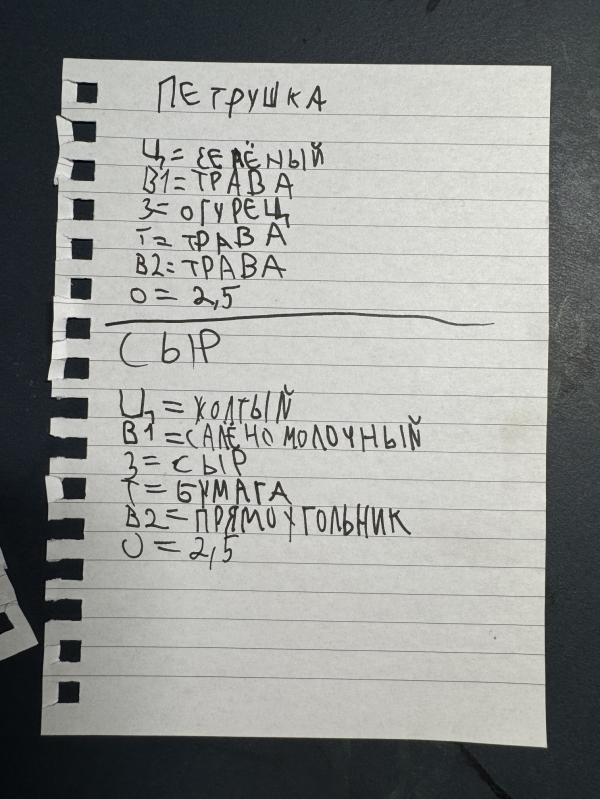 ПЕТРУШКА
Ц= ЗЕЛЁНЫЙ
В1= ТРАВА
З= ОГУРЕЦ
Т= ТРАВА
В2= ТРАВА
О= 2,5
СЫР
Ц= ЖОЛТЫЙ
В1=САЛЁНО МОЛОЧНЫЙ
З= СЫР
Т= БУМАГА
В2= ПРЯМОУГОЛЬНИК
О= 2,5